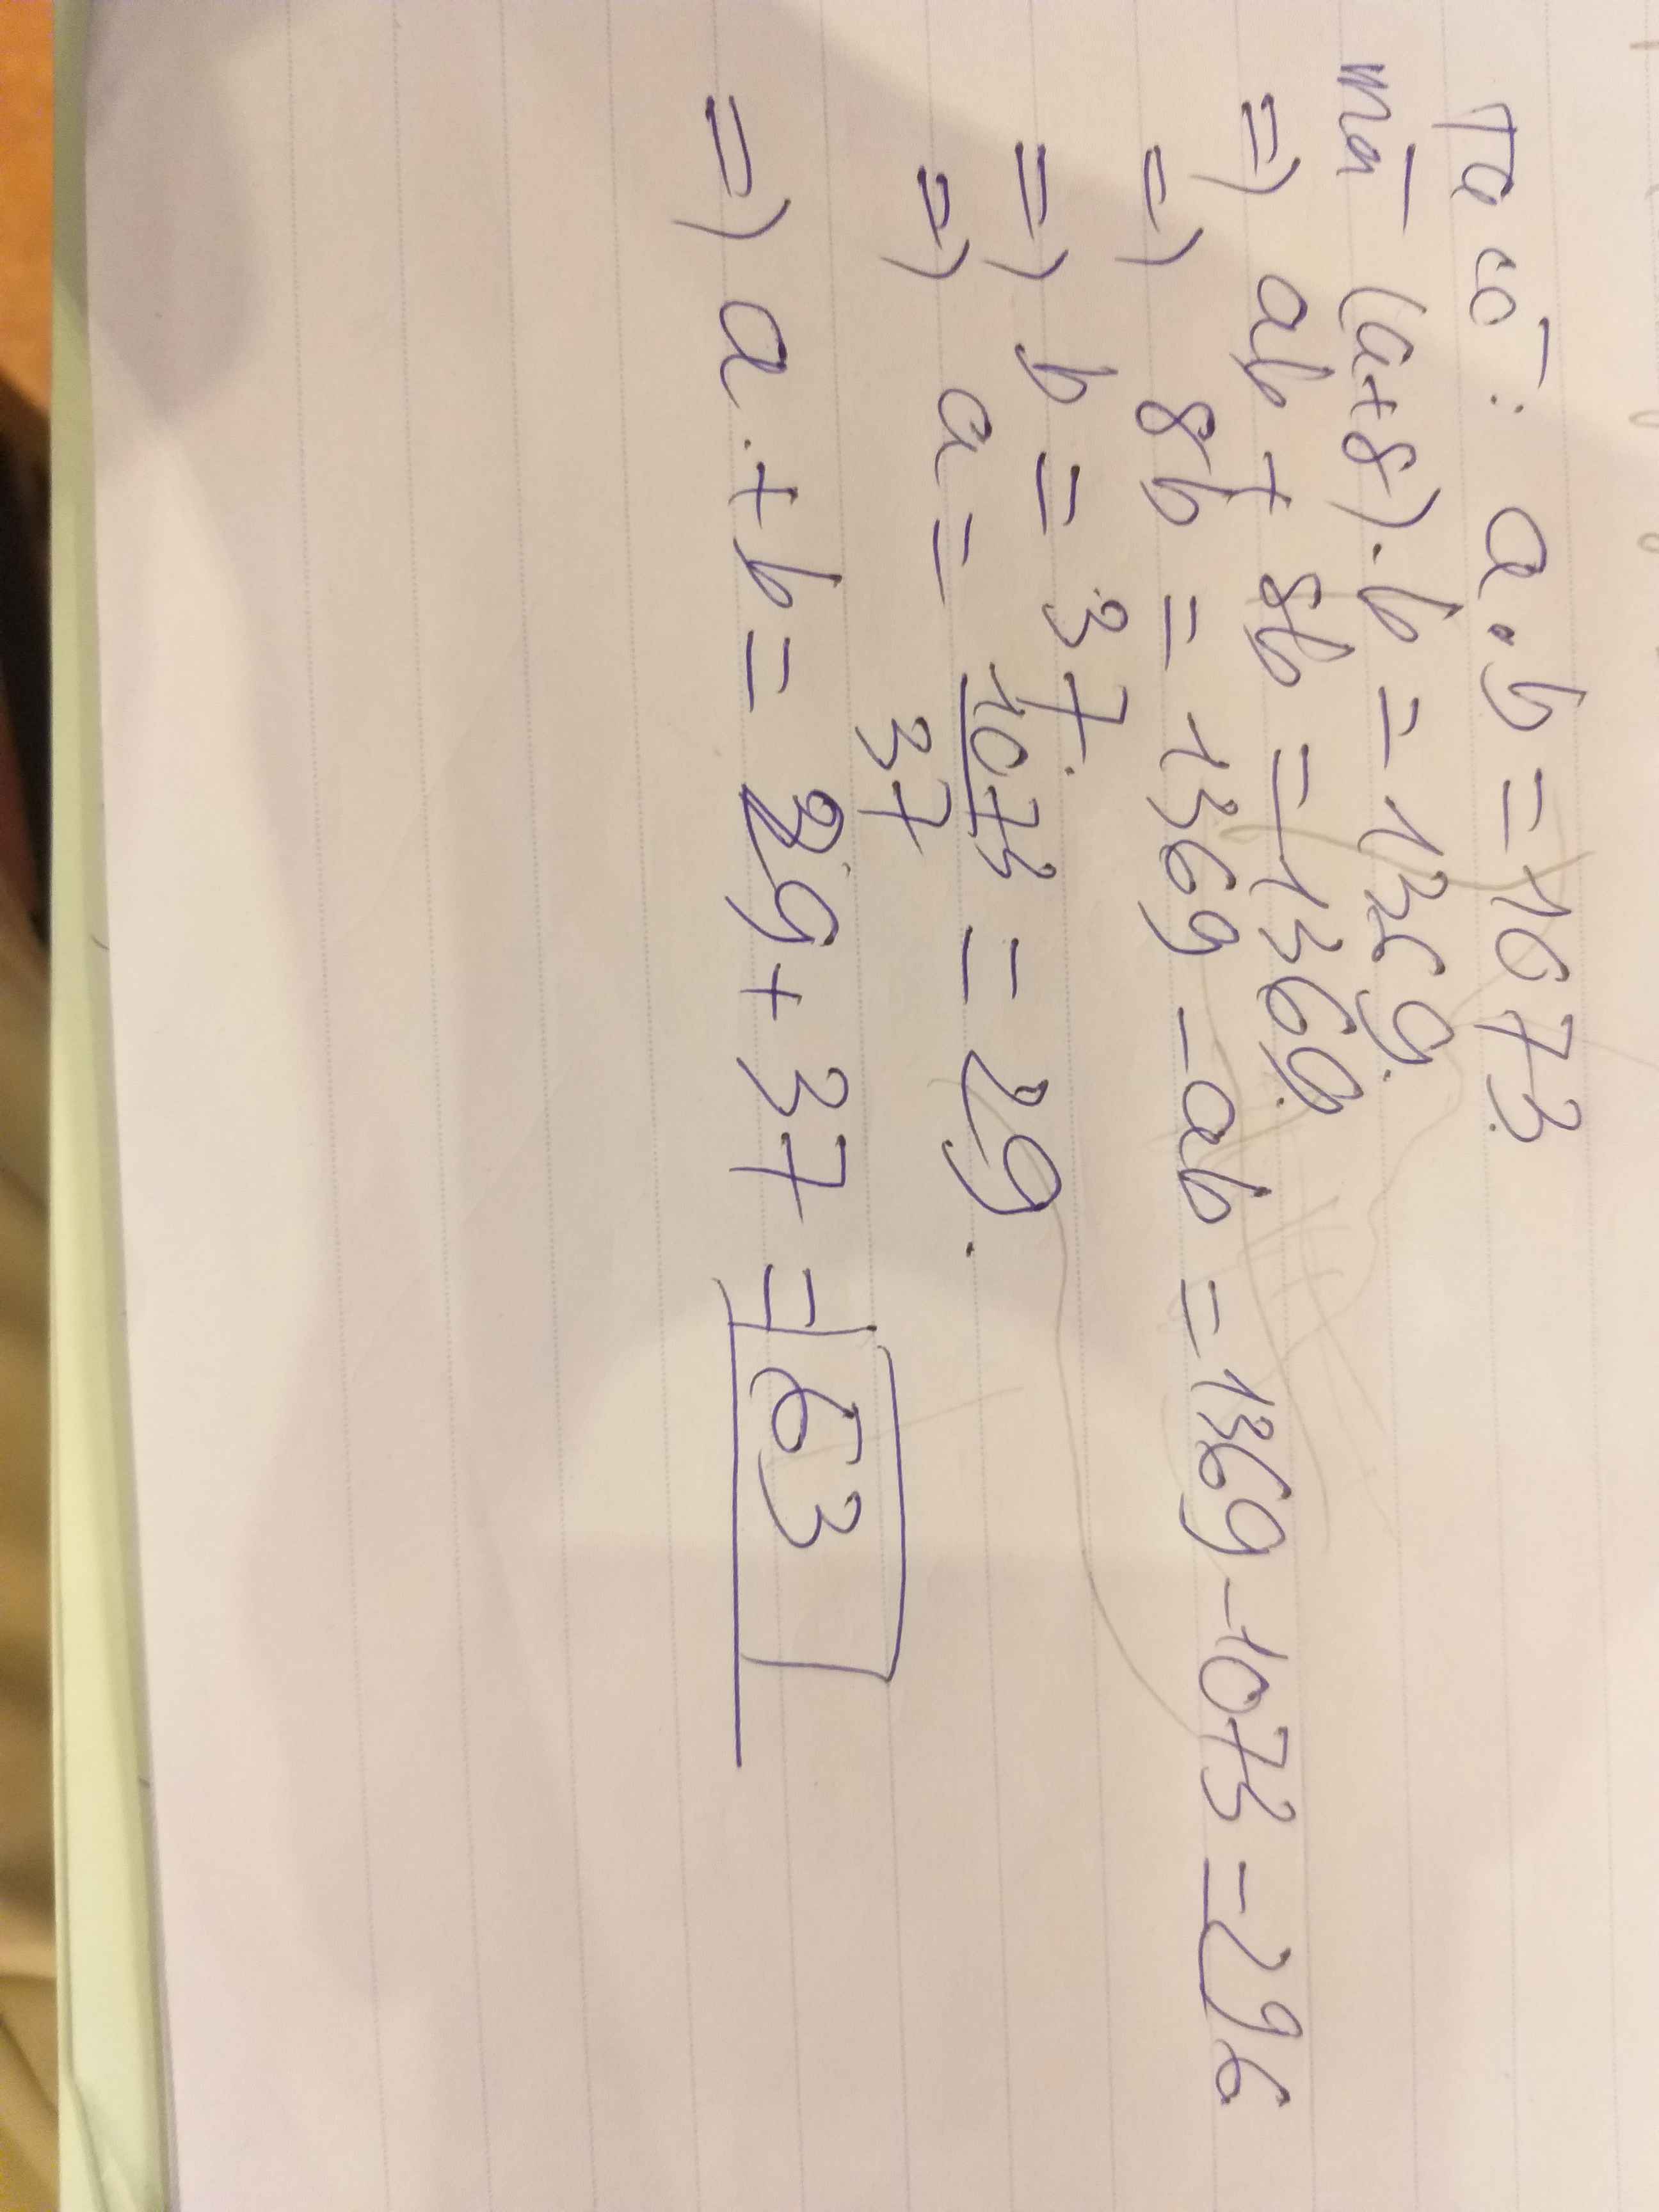 Ta có: a.b = 1073.
mà (a+8).b = 1369.
=) ab + 8b = 1369.
=) 8b = 1369 - ab = 1369 - 1073 = 296
=) b = 37.
=) a = 1073/37 = 29.
=) a + b = 29 + 37 = 63